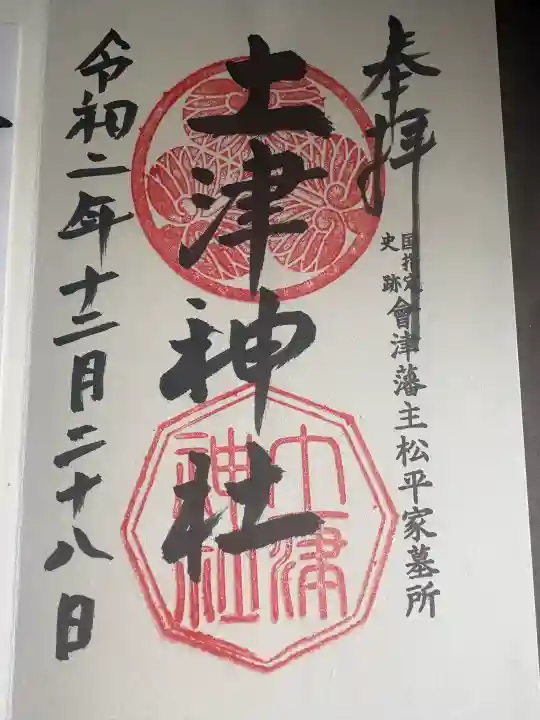 奉拝
国指定
史跡
會津藩主松平家墓所
土津神社
土津
神社
令和二年十二月二十八日